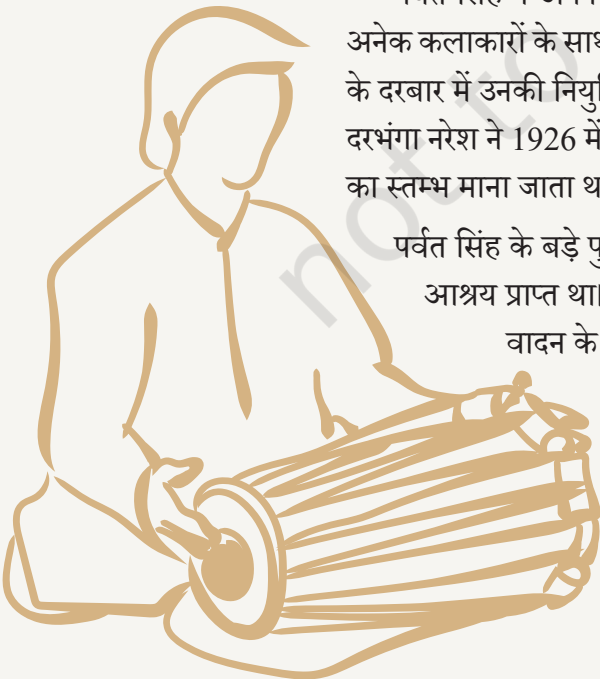 अनेक कलाकारों के साथ
के दरबार में उनकी
दरभंगा नरेश ने 1926 में
का स्तम्भ माना जाता
पर्वत सिंह के बड़े
आश्रय प्राप्त था।
वादन के
not to